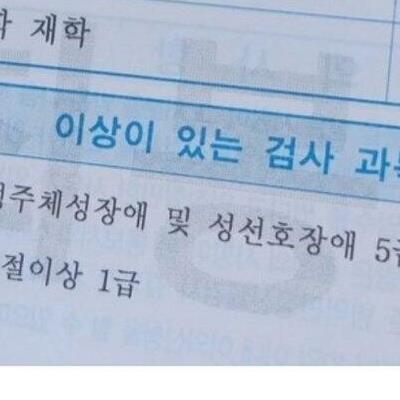 재학
이상이 있는 검사
주체성장애 및 성선호장애 5급
절이상 1급